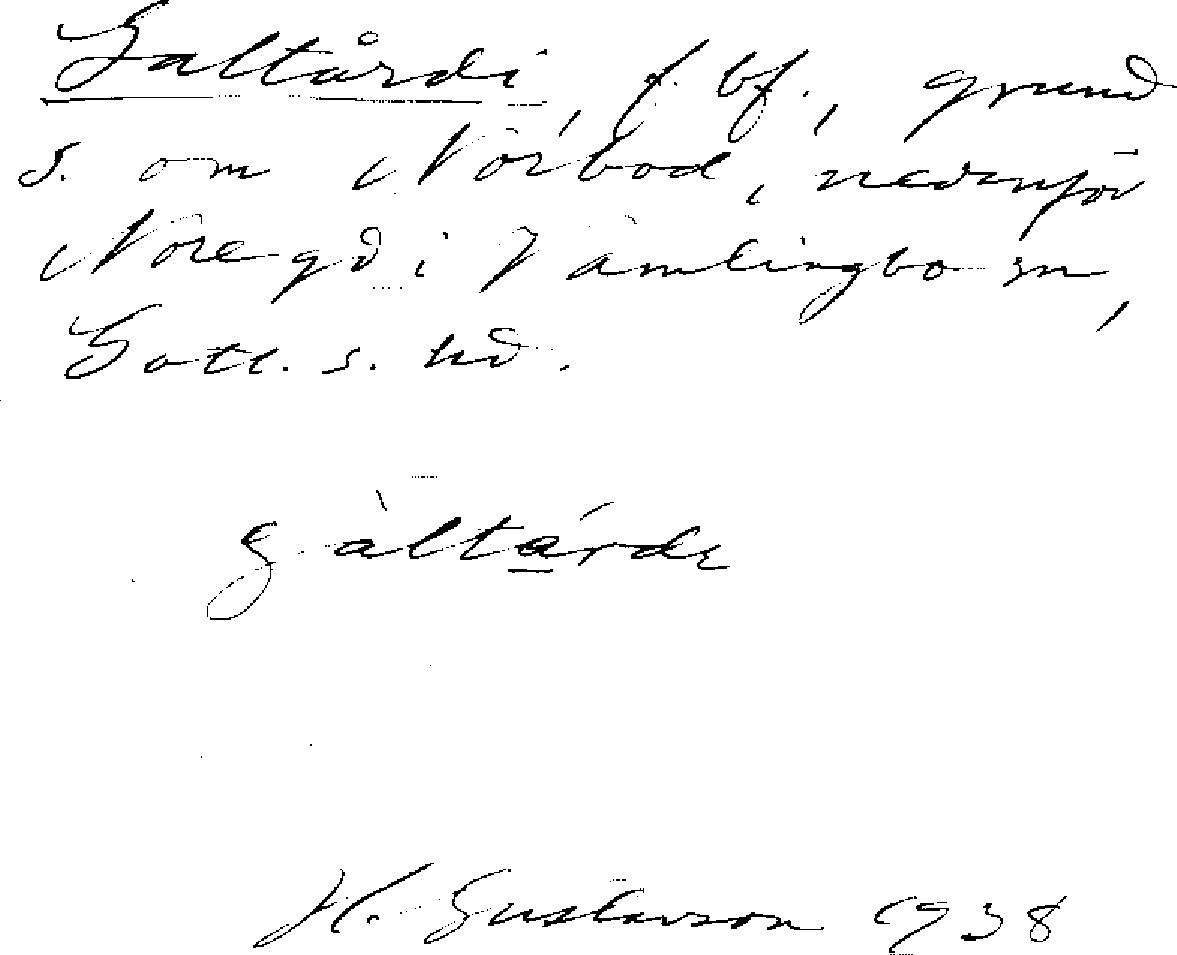 Galtårdi, f. bf., grund
s. om Nórbod, nedanför
Nore gd i Vamlingbo sn,
Gotl. s. hd.
gàltárde
H. Gustavson 1938